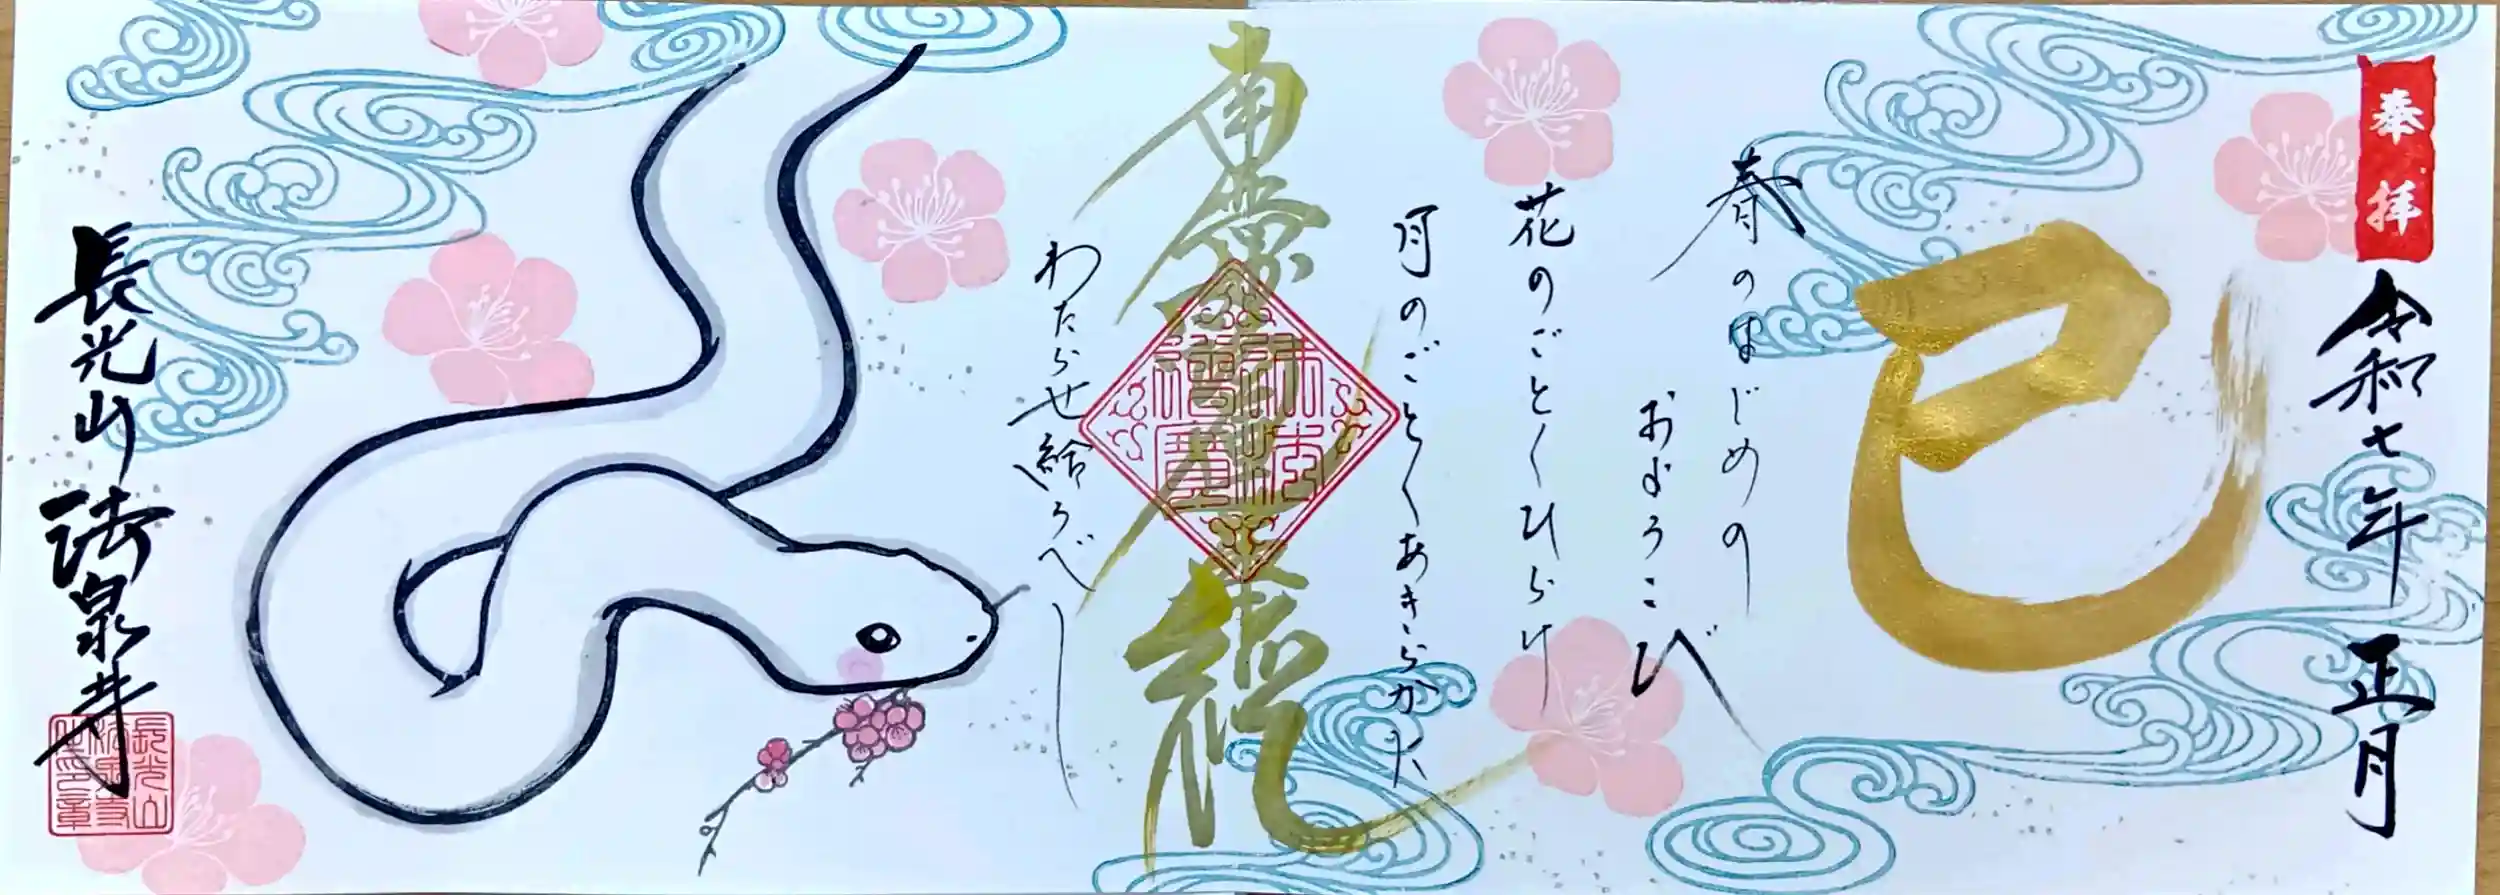 奉拝
令和七年 正月
巳
春のはじめの
およろこび
花のごとくひらけ
月のごとくあきらかに
わたらせ給うべし
佛法僧寶
長光山 法泉寺
長光山
法泉寺